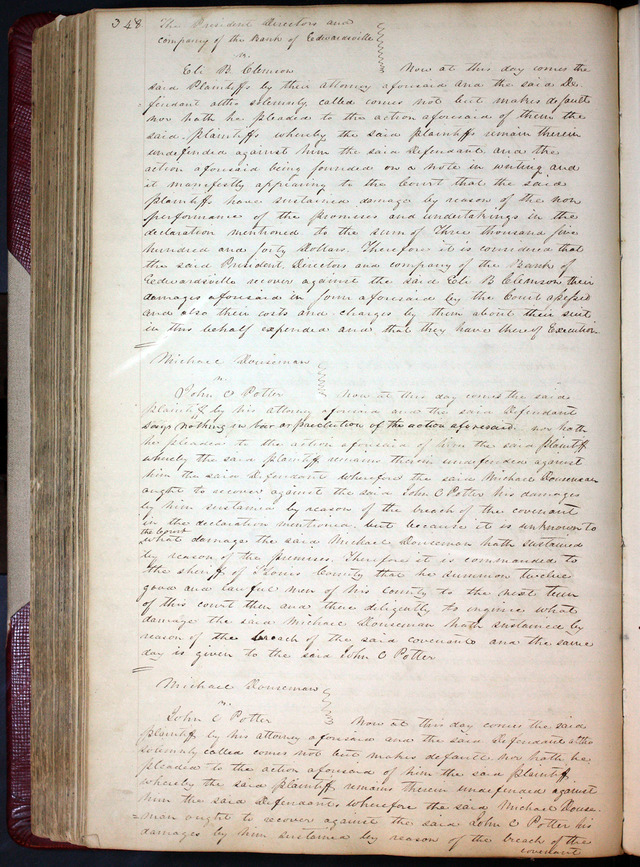 348 The President Directors and
company of the Bank of Edwardsville
vs.
Eli B Clemson Now at this day comes the
said Plaintiffs by their attorney aforesaid and the said De-
fendant altho solemnly called comes not but makes default
nor hath he pleaded to the action aforesaid of them the
said plaintiffs whereby the said plaintiffs remain therein
undefended against him the said Defendant and the
action aforesaid being founded on a note in writing and
it manifestly appearing to the Court that the said
plaintiffs have sustained damage by reason of the non
performance of the promises and undertakings in the
declaration mentioned to the sum of Three thousand five
hundred and forty dollars. Therefore it is considered that
the said President Directors and company of the Bank of
Edwardsville recover against the said Eli B Clemson their
damages aforesaid in form aforesaid by the Court assessed
and also their costs and charges by them about their suit
in this behalf expended and that they have thereof Execution
Michael Douseman
vs.
John C Potter Now at this day comes the said
plaintiff by his attorney aforesaid and the said Defendant
says nothing in bar or preclution of the action aforesaid nor hath
he pleaded to the action aforesaid of him the said plaintiff
whereby the said plaintiff remains therein undefended against
him the said Defendant wherefore the said Michael Douseman
ought to recover against the said John C Potter his damages
by him sustained by reason of the breach of the covenant
in the declaration mentioned. but because it is unknown to
the Court
what damage the said Michael Douseman hath sustained
by reason of the premises. Therefore it is commanded to
the sheriff of St Louis County that he summon twelve
good and lawful men of his county to the next term
of this court then and there diligently to inquire what
damage the said Michael Douseman hath sustained by
reason of the breach of the said covenant and the same
day is given to the said John C Potter
Michael Douseman
vs.
John C Potter Now at this day comes the said
plaintiff by his attorney aforesaid and the said Defendant altho
solemnly called comes not but makes default nor hath he
pleaded to the action aforesaid of him the said plaintiff
whereby the said plaintiff remains therein undefended against
him the said Defendant wherefore the said Michael Douse-
=man ought to recover against the said John C Potter his
damages by him sustained by reason of the breach of the
covenant